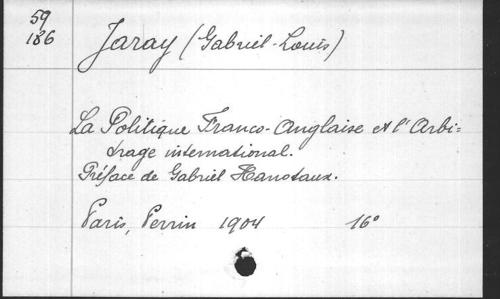 59
186
Jaray (Gabriel-Louis)
La Politique Franco-Anglaise et l'Arbi=
trage international.
Préface de Gabriel Hanotaux.
Paris, Perrin 1904 16°